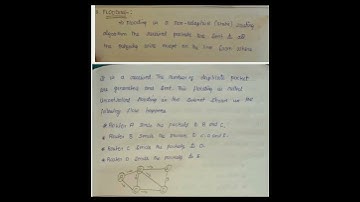 FLOODING :
* Flooding is a non-adaptive (static) routing
algorithm the received packets are sent to all
the outgoing lines except on the line from where
it is received. The number of duplicate packet
are generated and sent. This flooding is called
uncontrolled flooding in the
following flow happens.
* Router A sends the packets to B and C.
* Router B sends the packets to C, D and E.
* Router C sends the packets to D.
* Router D sends the packets to E.